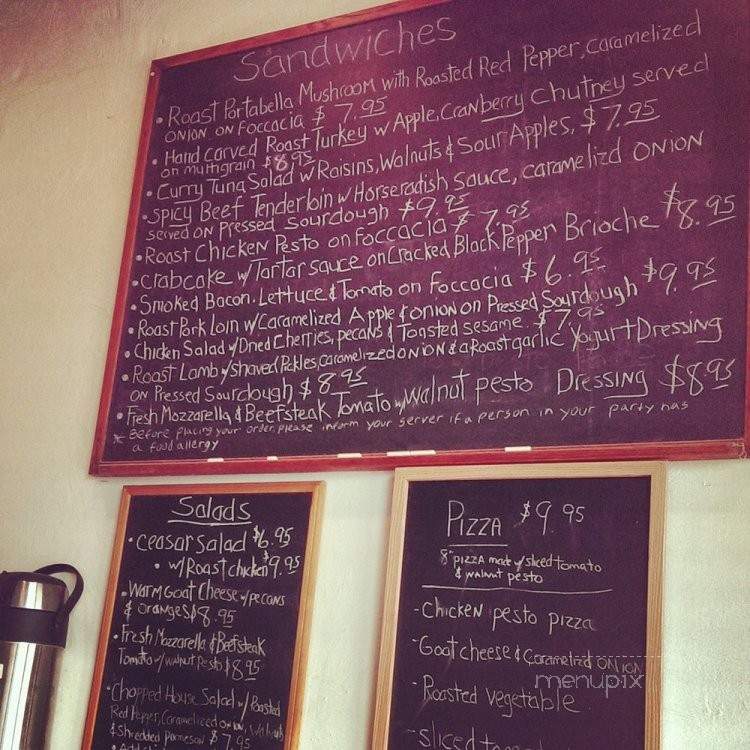 Sandwiches
• Roast Portabella Mushroom with Roasted Red Pepper, caramelized
onion on Foccacia $7.95
• Hand carved Roast Turkey w Apple, Cranberry Chutney served
on multigrain $8.95
• Curry Tuna Salad w Raisins, Walnuts & Sour Apples, $7.95
• Spicy Beef Tenderloin w Horseradish Sauce, caramelizd ONION
served on Pressed Sourdough $9.95
• Roast Chicken Pesto on foccacia $7.95
• crabcake w/Tartar sauce on Cracked Black Pepper Brioche $8.95
• Smoked Bacon, Lettuce & Tomato on Foccacia $6.95
• Roast Pork Loin w/Caramelized Apple & onion on Pressed Sourdough $9.95
• Chicken Salad w/Dried Cherries, pecans & Toasted sesame. $7.95
• Roast Lamb w/shaved Pickles, caramelized ONION & a Roast garlic Yogurt Dressing
on Pressed Sourdough, $8.95
• Fresh Mozzarella & Beefsteak Tomato w/walnut pesto Dressing $8.95
* Before placing your order, please inform your server if a person in your party has
a food allergy
Salads
• ceasar salad $6.95
• w/Roast chicken $9.95
• Warm Goat Cheese w/pecans
& oranges $8.95
• Fresh Mozzarella & Beefsteak
Tomato w/ walnut pesto $8.95
• Chopped House Salad w/ Roasted
Red Pepper, Caramelized onion, Walnuts
& shredded parmesan $7.95
PIZZA $9.95
8" PIZZA made w/ sliced tomato
& walnut pesto
- Chicken pesto pizza
- Goat cheese & Caramelizd ONION
- Roasted vegetable
- sliced
menupix